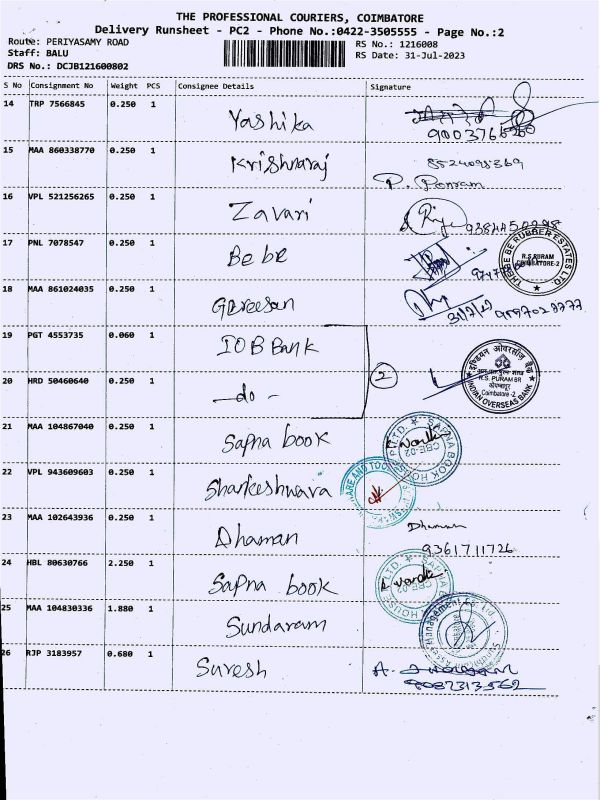 THE PROFESSIONAL COURIERS, COIMBATORE
Delivery Runsheet - PC2 - Phone No.:0422-3505555 - Page No.:2
Route: PERIYASAMY ROAD
RS No.: 1216008
Staff: BALU
RS Date: 31-Jul-2023
DRS No.: DCJB121600802
S No Consignment No Weight PCS Consignee Details Signature
14 TRP 7566845 0.250 1 Yashika
15 MAA 860338770 0.250 1 Krishnaraj 8524098369
P. Ponram
16 VPL 521256265 0.250 1 Zavari
17 PNL 7078547 0.250 1 Be be
THREE BE RUBBER ESTATES LTD. R.S.PURAM COIMBATORE-2
18 MAA 861024035 0.250 1
19 PGT 4553735 0.060 1 IOB Bank
20 HRD 50460640 0.250 1 -do- 2
इण्डियन ओवरसीज़ बैंक R.S. PURAM BR Coimbatore-2 INDIAN OVERSEAS BANK
21 MAA 104867040 0.250 1 Sapna book
SAPNA BOOK HOUSE CBE-02
22 VPL 943609603 0.250 1 Shankeshwara
23 MAA 102643936 0.250 1 Dhaman Dhaman
9361711726
24 HBL 80630766 2.250 1 Sapna book
25 MAA 104830336 1.880 1 Sundaram
26 RJP 3183957 0.680 1 Suresh
9087313562